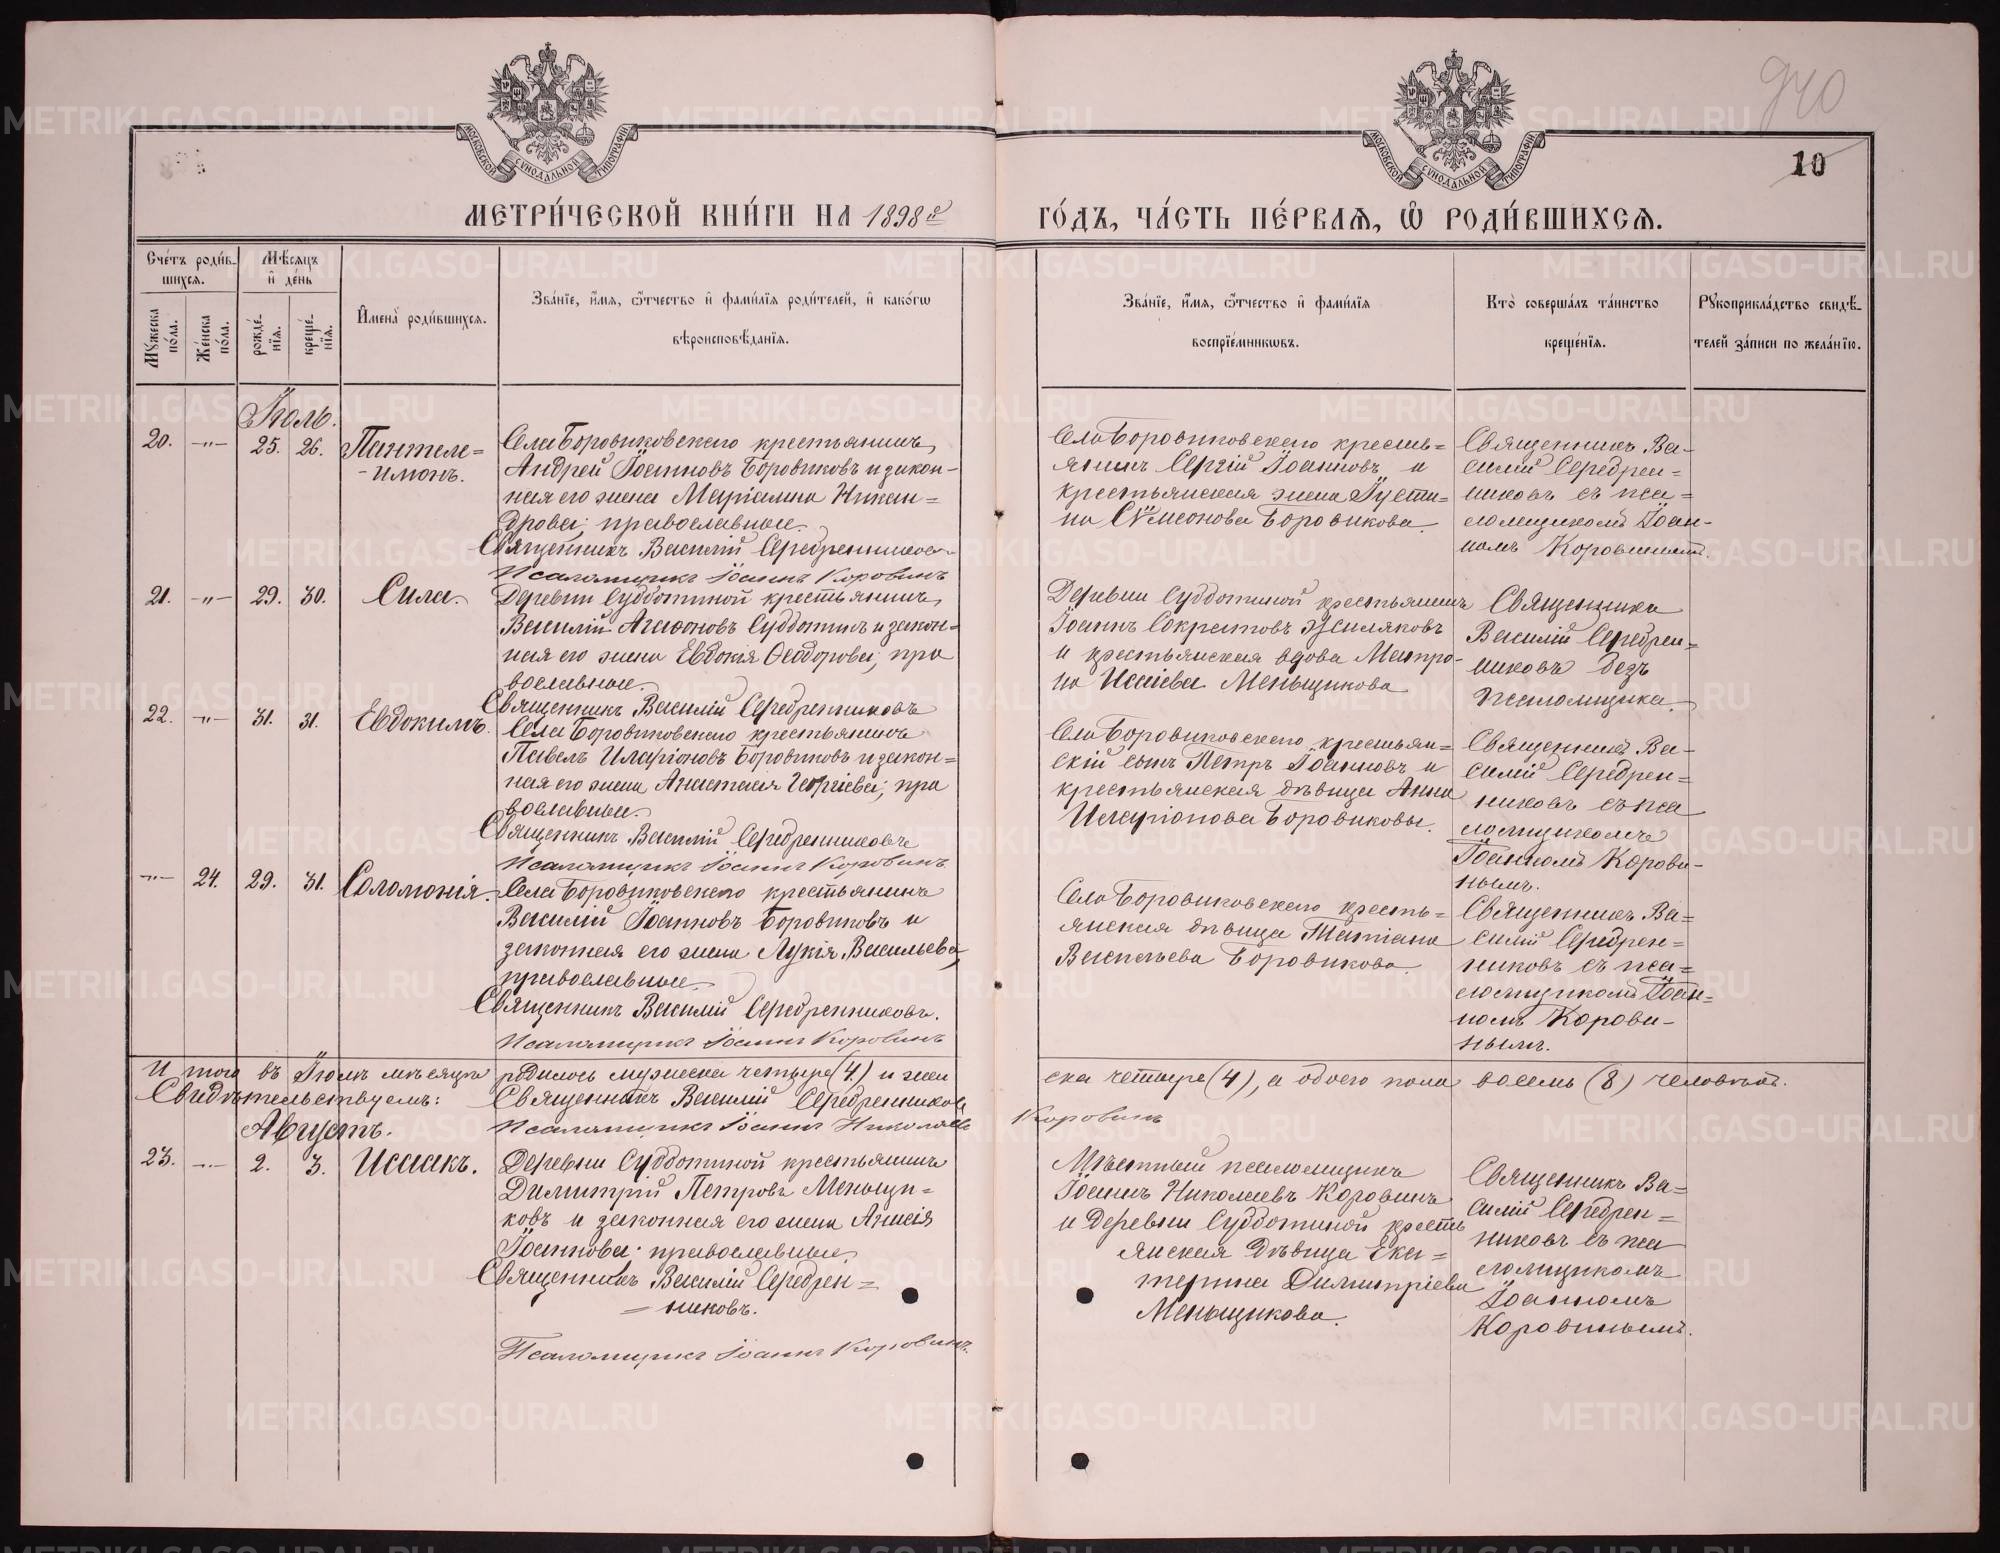 940
10
МОСКОВСКОЙ СУНОДАЛЬНОЙ ТИПОГРАФІИ
МОСКОВСКОЙ СУНОДАЛЬНОЙ ТИПОГРАФІИ
МЕТРИ́ЧЕСКОЙ КНИ́ГИ НА 1898й
ГО́ДЪ, ЧА́СТЬ ПЕ́РВАѦ, Ѡ҆ РОДИ́ВШИХСѦ.
Сче́тъ роди́в-
шихсѧ.
Мѣ́сяцъ
и҆ де́нь
И҆мена̀ роди́вшихсѧ.
Зва́нїе, и҆́мѧ, ѻ҆́тчество и҆ фами́лїѧ роди́телей, и҆ како́гѡ
вѣроисповѣ́данїѧ.
Мꙋ́жеска по́ла.
Же́нска по́ла.
рожде́-
нїѧ.
креще́-
нїѧ.
Зва́нїе, и҆́мѧ, ѻ҆́тчество и҆ фами́лїѧ
воспрїе́мникѡвъ.
Кто̀ соверша́лъ та́инство
креще́нїѧ.
Рꙋкоприкла́дство свидѣ́-
телей за́писи по жела́нїю.
Іюль.
20. -"- 25. 26. Пантеле=
-имонъ.
Села Боровиковскаго крестьянинъ
Андрей Іоанновъ Боровиковъ и закон-
ная его жена Маріамна Никан=
дрова; православные.
Священникъ Василій Серебренниковъ
Псаломщикъ Іоаннъ Коровинъ
Села Боровиковскаго кресть=
янинъ Сергій Іоанновъ и
крестьянская жена Іусти=
на Сѵмеонова Боровикова.
Священникъ Ва-
силій Серебрен=
никовъ съ пса=
ломщикомъ Іоан-
номъ Коровинымъ.
21. -"- 29. 30. Сила.
Деревни Субботиной крестьянинъ
Василій Агаѳоновъ Субботинъ и закон=
ная его жена Евдокія Ѳеодорова; пра
вославные.
Священникъ Василій Серебренниковъ
Деревни Субботиной крестьянинъ
Іоаннъ Сократовъ Жиляковъ
и крестьянская вдова Матро-
на Исаіева Меньщикова
Священника
Василій Серебрен=
никовъ безъ
псаломщика.
22. -"- 31. 31. Евдокимъ.
Села Боровиковскаго крестьянинъ
Павелъ Иларіоновъ Боровиковъ и закон=
ная его жена Анастасія Георгіева; пра
вославные.
Священникъ Василій Серебренниковъ
Псаломщикъ Іоаннъ Коровинъ
Села Боровиковскаго крестьян=
скій сынъ Петръ Іоанновъ и
крестьянская дѣвица Анна
Иларіонова Боровиковы.
Священникъ Ва-
силій Серебрен=
никовъ съ пса
ломщикомъ
Іоанномъ Корови-
нымъ.
-"- 24. 29. 31. Соломонія.
Села Боровиковскаго крестьянинъ
Василій Іоанновъ Боровиковъ и
законная его жена Лукія Васильева,
православные.
Священникъ Василій Серебренниковъ.
Псаломщикъ Іоаннъ Коровинъ
Села Боровиковскаго кресть=
янская дѣвица Татіана
Васильева Боровикова.
Священникъ Ва=
силій Серебрен=
никовъ съ пса=
ломщикомъ Іоан=
номъ Корови-
нымъ.
Итого въ Іюлѣ мѣсяцѣ родилось мужеска четыре (4) и жен
ска четыре (4), а обоего пола восемь (8) человѣкъ.
Свидѣтельствуемъ: Священникъ Василій Серебренниковъ
Псаломщикъ Іоаннъ Николаевъ Коровинъ
Августъ.
23. -"- 2. 3. Исаакъ.
Деревни Субботиной крестьянинъ
Димитрій Петровъ Меньщи=
ковъ и законная его жена Анисія
Іоаннова; православные
Священникъ Василій Серебрен=
=никовъ.
Псаломщикъ Іоаннъ Коровинъ.
Мѣстный псаломщикъ
Іоаннъ Николаевъ Коровинъ
и Деревни Субботиной кресть
янская дѣвица Ека=
терина Димитріева
Меньщикова.
Священникъ Ва=
силій Серебрен=
никовъ съ пса
ломщикомъ
Іоанномъ
Коровинымъ.
METRIKI.GASO-URAL.RU